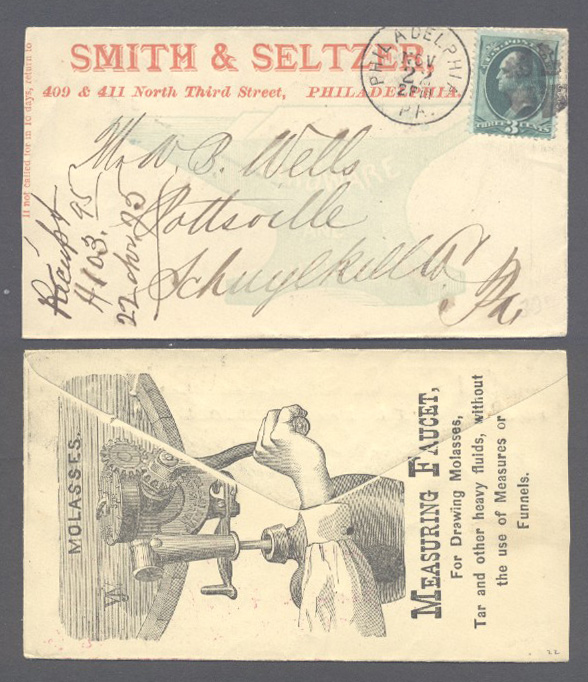 SMITH & SELTZER,
409 & 411 North Third Street, PHILADELPHIA.
If not called for in 10 days, return to
PHILADELPHIA
NOV
2 PM
PA.
THREE 3 CENTS
Mr W. B. Wells
Pottsville
Schuylkill Co
Pa
Receipt
95
MOLASSES.
MEASURING FAUCET,
For Drawing Molasses,
Tar and other heavy fluids, without
the use of Measures or
Funnels.
22